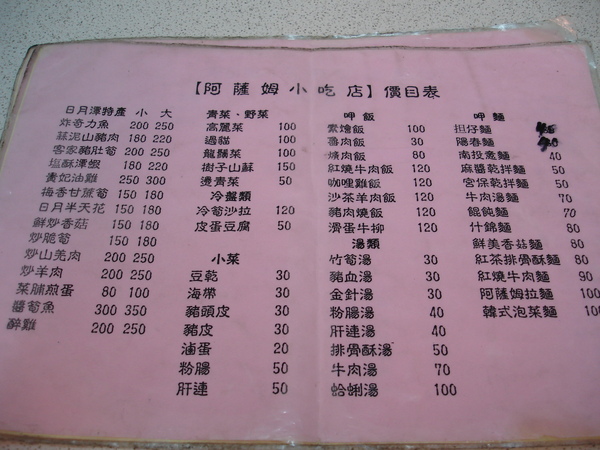 【阿薩姆小吃店】價目表
日月潭特產 小 大
炸奇力魚 200 250
蒜泥山豬肉 180 220
客家豬肚筍 200 250
塩酥潭蝦 180 220
貴妃油雞 250 300
梅香甘蔗筍 150 180
日月半天花 150 180
鮮炒香菇 150 180
炒脆筍 150 180
炒山羌肉 200 250
炒羊肉 200 250
菜脯煎蛋 80 100
醬筍魚 300 350
醉雞 200 250
青菜、野菜
高麗菜 100
過貓 100
龍鬚菜 100
樹子山蘇 150
燙青菜 50
冷盤類
冷筍沙拉 120
皮蛋豆腐 50
小菜
豆乾 30
海帶 30
豬頭皮 30
豬皮 30
滷蛋 20
粉腸 50
肝連 50
呷飯
素燴飯 100
魯肉飯 30
焢肉飯 80
紅燒牛肉飯 120
咖哩雞飯 120
沙茶羊肉飯 120
豬肉燒飯 120
滑蛋牛柳 120
湯類
竹筍湯 30
豬血湯 30
金針湯 30
粉腸湯 40
肝連湯 40
排骨酥湯 50
牛肉湯 70
蛤蜊湯 100
呷麵
担仔麵
陽春麵
南投意麵 40
麻醬乾拌麵 50
宮保乾拌麵 50
牛肉湯麵 70
餛飩麵 70
什錦麵 80
鮮美香菇麵 80
紅茶排骨酥麵 80
紅燒牛肉麵 90
阿薩姆拉麵 100
韓式泡菜麵 100